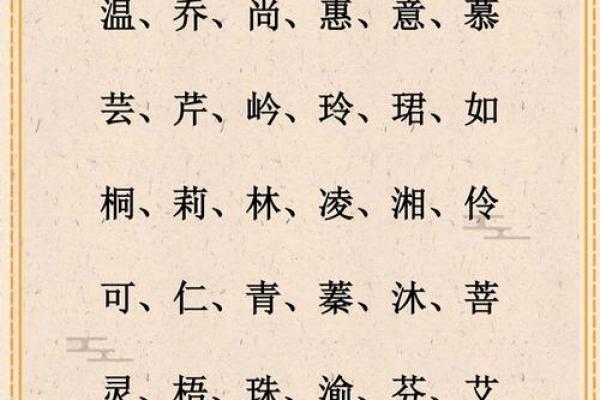 温、乔、尚、惠、意、慕
芸、芹、岭、玲、珺、如
桐、莉、林、凌、湘、伶
可、仁、青、蓁、沐、菩
灵、梧、珠、渝、芬、艾